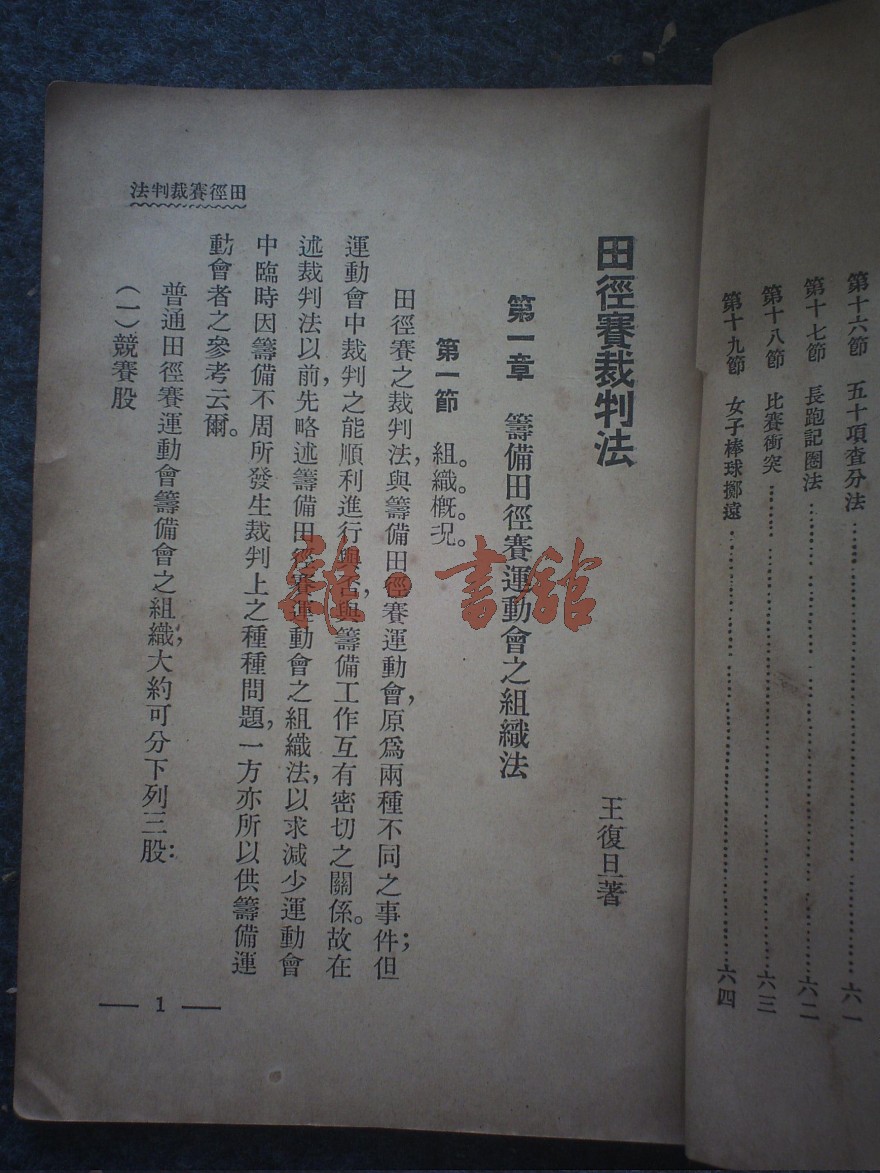 第十六節　五十項查分法……六一
第十七節　長跑記圈法……六二
第十八節　比賽衝突……六三
第十九節　女子棒球擲遠……六四
田徑賽裁判法
王復旦著
第一章　籌備田徑賽運動會之組織法
第一節　組織概況。
田徑賽之裁判法，與籌備田徑賽運動會，原爲兩種不同之事件；但
運動會中裁判之能順利進行與否，與籌備工作互有密切之關係。故在
述裁判法以前，先略述籌備田徑賽運動會之組織法，以求減少運動會
中臨時因籌備不周所發生裁判上之種種問題，一方亦所以供籌備運
動會者之參考云爾。
普通田徑賽運動會籌備會之組織，大約可分下列三股：
（一）競賽股
田徑賽裁判法
— 1 —
雜·書館